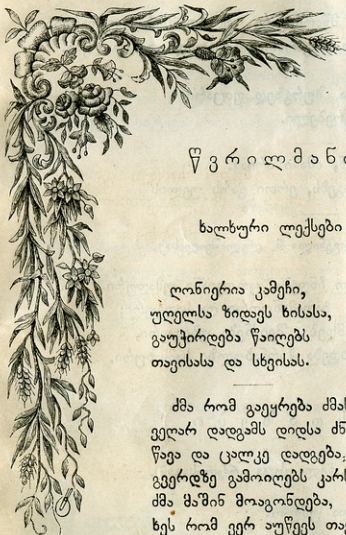 წვრილმანი
ხალხური ლექსები
ღონიერია კამეჩი,
უღელსა ზიდავს ხისასა,
გაუჭირდება წაიღებს
თავისასა და სხვისას.
ძმა რომ გაეყრება ძმას
ვეღარ დადგამს დიდსა
წავა და ცალკე დადგება,
გვერდზე გამოიღებს კარს
ძმა მაშინ მოაგონდება,
ხეს რომ ვერ აუწევს